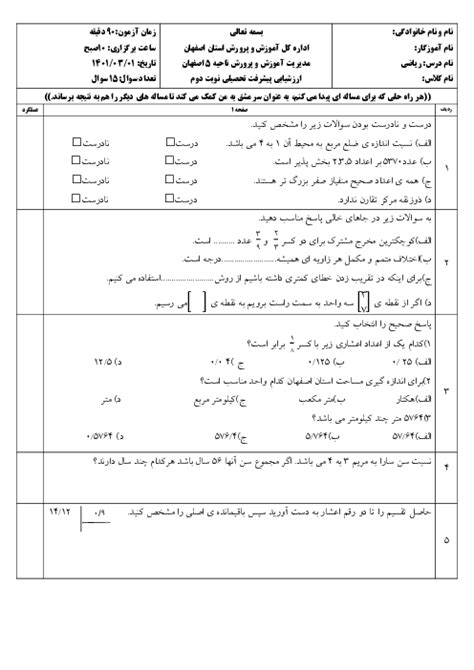 نام و نام خانوادگی:
بسمه تعالی
زمان آزمون: ۹۰ دقیقه
نام آموزگار:
اداره کل آموزش و پرورش استان اصفهان
ساعت برگزاری: ۱۰صبح
نام درس: ریاضی
مدیریت آموزش و پرورش ناحیه ۵ اصفهان
تاریخ: ۱۴۰۱/۰۳/۰۱
نام کلاس:
ارزشیابی پیشرفت تحصیلی نوبت دوم
تعداد سوال: ۱۵ سوال
((هر راه حلی که برای مساله ای پیدا می کنم، به عنوان سر مشق به من کمک می کند تا مساله های دیگر را هم به نتیجه برسانم.))
ردیف
صفحه ۱
عملکرد
۱
درست و نادرست بودن سوالات زیر را مشخص کنید.
الف) نسبت اندازه ی ضلع مربع به محیط آن ۱ به ۴ می باشد. درست نادرست
ب) عدد ۵۳۷۰ بر اعداد ۲،۳،۵ بخش پذیر است. درست نادرست
ج) همه ی اعداد صحیح منفی از صفر بزرگ تر هستند. درست نادرست
د) ذوزنقه مرکز تقارن ندارد. درست نادرست
۲
به سوالات زیر در جاهای خالی پاسخ مناسب دهید.
الف) کوچکترین مخرج مشترک برای دو کسر ۲/۳ و ۳/۹ عدد ......... است.
ب) اختلاف متمم و مکمل هر زاویه ای همیشه......................درجه است.
ج) برای اینکه در تقریب زدن خطای کمتری داشته باشیم از روش......................استفاده می کنیم.
د) اگر از نقطه ی [۲ ۷] سه واحد به سمت راست برویم به نقطه ی [ ] می رسیم.
۳
پاسخ صحیح را انتخاب کنید.
۱) کدام یک از اعداد اعشاری زیر با کسر ۱/۸ برابر است؟
الف) ۰/۲۵ ب) ۰/۱۲۵ ج) ۰/۰۴ د) ۱۲/۵
۲) برای اندازه گیری مساحت استان اصفهان کدام واحد مناسب است؟
الف) هکتار ب) متر مکعب ج) کیلومتر مربع د) متر
۳) ۵۷۶۴ متر چند کیلومتر می باشد؟
الف) ۵۷/۶۴ ب) ۵/۷۶۴ ج) ۵۷۶/۴ د) ۰/۵۷۶۴
۴
نسبت سن سارا به مریم ۳ به ۴ می باشد. اگر مجموع سن آنها ۵۶ سال باشد هرکدام چند سال دارند؟
۵
حاصل تقسیم را تا دو رقم اعشار به دست آورید سپس باقیمانده ی اصلی را مشخص کنید. ۱۴/۱۲ ۰/۹